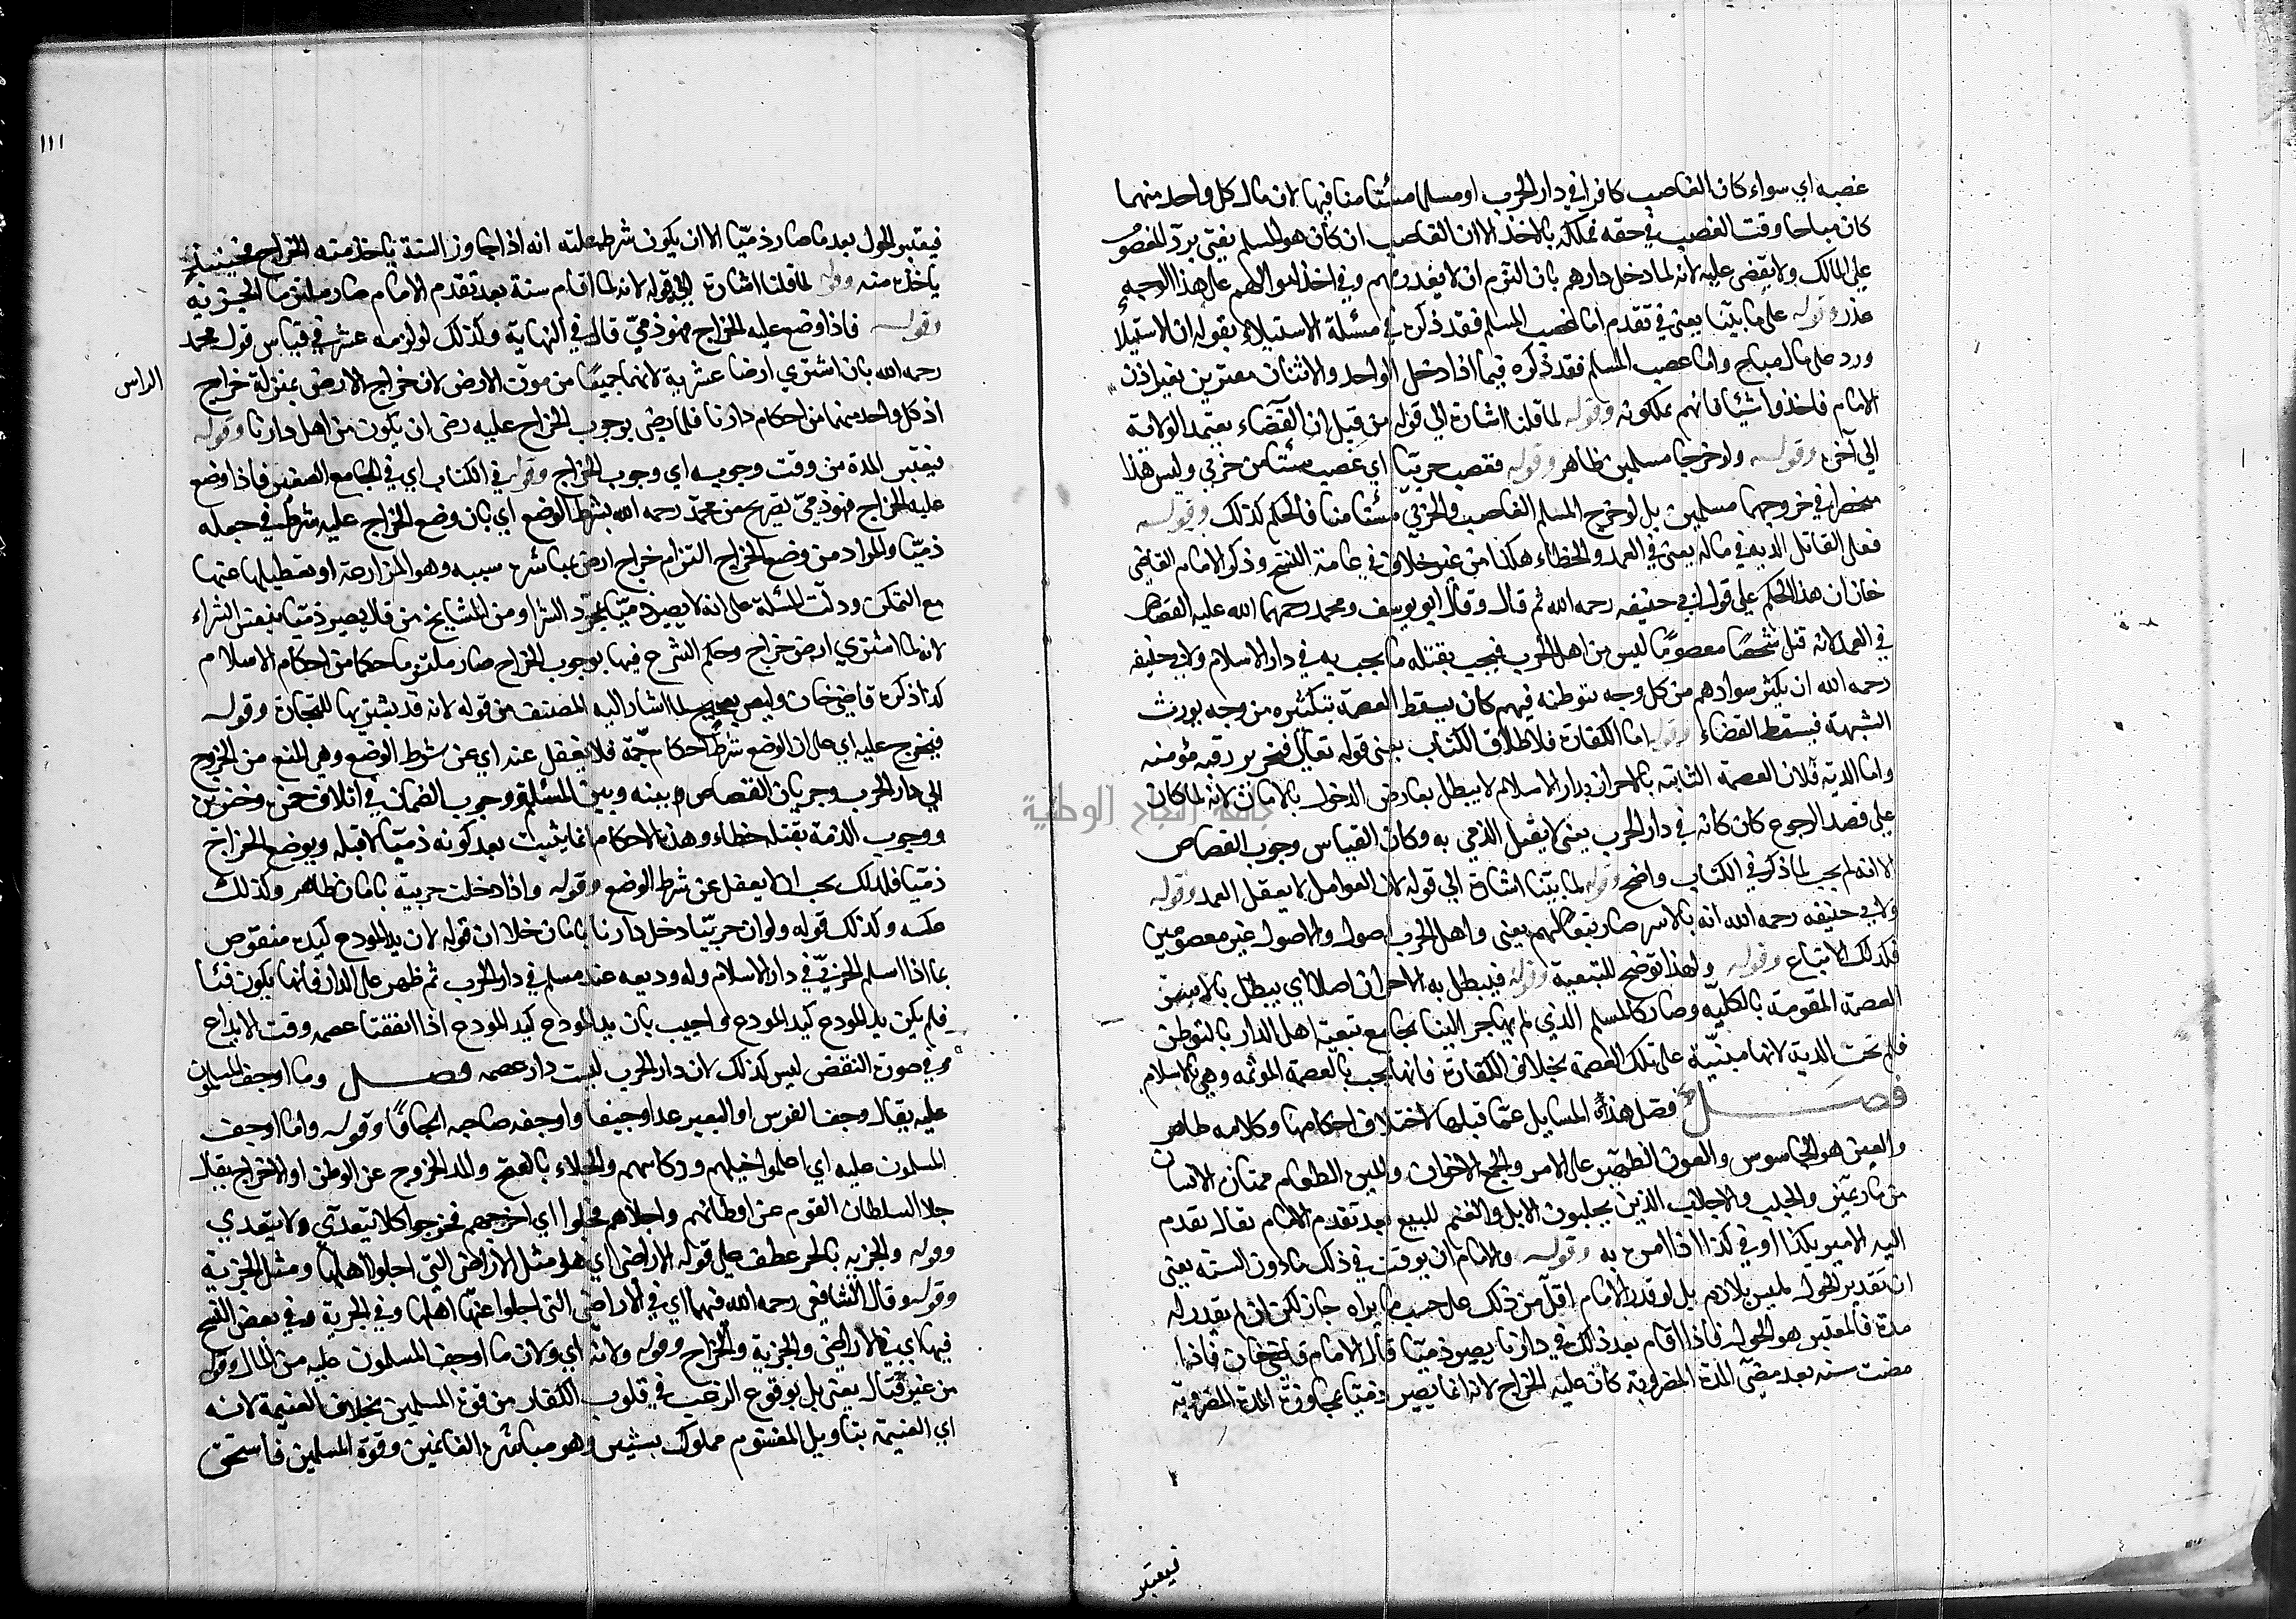 غصبه اي سواء كان الغاصب كافرا في دار الحرب او مسلما مستأمنا فيها لان مال كل واحد منهما
كان مباحا وقت الغصب في حقه فملكه بالاخذ الا ان الغاصب ان كان هو المسلم يفتى برد المغصوب
على المالك ولا يقضى عليه لانه لما دخل دارهم بان التزم ان لا يغدر بهم وفي اخذ اموالهم على هذا الوجه
غدر وقوله على ما بيّنا يعني في تقدم اما غصب المسلم فقد ذكره في مسئلة الاستيلاء بقوله ان الاستيلا
ورد على مال مباح واما غصب المسلم فقد ذكره فيما اذا دخل الواحد والاثنان مغيرين بغير اذن
الامام فاخذوا شيئا فانهم يملكونه وقوله لما قلنا اشارة الى قوله من قبل ان القضاء يعتمد الولاية
الى آخره وقوله ولو خرجا مسلمين ظاهر وقوله فغصب حربيّا اي غصب مسئتامن حربي وليس هذا
منحصرا في خروجهما مسلمين بل لو خرج المسلم الغاصب والحربي مسئتامنا فالحكم كذلك وقوله
فعلى القاتل الدية في ماله يعني في العمد والخطاء هكذا من غير خلاف في عامة النسخ وذكر الامام القاضي
خان ان هذا الحكم على قول ابي حنيفه رحمه الله ثم قال وقال ابو يوسف ومحمد رحمهما الله عليه القصاص
في العمد لانه قتل شخصًا معصومًا ليس من اهل الحرب فيجب بقتله ما يجب به في دار الاسلام ولابي حنيفه
رحمه الله ان يكثر سوادهم من كل وجه بتوطنه فيهم كان يسقط العصمة بتكثره من وجه يورث
الشبهة فيسقط القضاء وقوله اما الكفارة فلاطلاق الكتاب يعني قوله تعالى فتحرير رقبه مؤمنه
واما الدية فلان العصمة الثابته بالاحراز بدار الاسلام لا يبطل بعارض الدخول بالامان لانه لما كان
على قصد الرجوع كان كانه في دار الحرب يعني لا يقتل الذمي به وكان القياس وجوب القصاص
الا انه لم يجب لما ذكر في الكتاب واضح وقوله لما بيّنا اشارة الى قوله لان العواقل لا يعقل العمد وقوله
ولابي حنيفه رحمه الله انه بالاسر صار تبعًا لهم يعني واهل الحرب اصول والاصول غير معصومين
فكذلك الاتباع وقوله ولهذا توضيح للتبعية وقوله فيبطل به الاحراز اصلا اي يبطل بالاسر
العصمة المقومة بالكليّه وصار كالمسلم الذي لم يهاجر الينا بجامع تبعية اهل الدار بالتوطن
فلم تجب الدية لانها مبنيّة على تلك العصمة بخلاف الكفارة فانها تجب بالعصمة المؤثمه وهي بالاسلام
فصل فصل هذه المسايل عمّا قبلها لاختلاف احكامها وكلامه ظاهر
والعين هو الجاسوس والعون الظهير على الامر والجمع الاعوان والمير الطعام يمتاره الانسان
من مار يمير والجلب والاجلاب الذين يجلبون الابل والغنم للبيع بعد تقدم الامام يقال تقدم
اليه الامير بكذا او في كذا اذا امره به وقوله وللامام ان يوقت في ذلك ما دون السنة يعني
ان تقدير الحول ليس بلازم بل لو قدر الامام اقل من ذلك على حسب ما يراه جاز لكن ان لم يقدر له
مدة فالمعتبر هو الحول فاذا اقام بعد ذلك في دارنا يصير ذميّا قال الامام قاضي خان فاذا
مضت سنه بعد مضيّ المدة المضروبة كان عليه الخراج لانه انما يصير ذميّا بمجاوزة المدة المضروبة
فيعتبر
١١١
فيعتبر الحول بعد ما صار ذميّا الا ان يكون شرط عليه انه اذا جاوز السنة يأخذ منه الخراج فحينئذ
يأخذه منه وقوله لما قلنا اشارة الى قوله لانه لما اقام سنة بعد تقدم الامام صار ملتزما الجزية
وقوله فاذا وضع عليه الخراج فهو ذميّ قال في النهاية وكذلك لو لزمه عشر في قياس قول محمد
رحمه الله بان اشترى ارضا عشرية لانهما جميعًا من مؤن الارض لان خراج الارض بمنزلة خراج الراس
اذ كل واحد منهما من احكام دارنا فلما رضي بوجوب الخراج عليه رضي ان يكون من اهل دارنا وقوله
فيعتبر المدة من وقت وجوبه اي وجوب الخراج وقوله في الكتاب اي في الجامع الصغير فاذا وضع
عليه الخراج فهو ذميّ تصريح من محمّد رحمه الله بشرط الوضع اي بان وضع الخراج عليه شرط في جعله
ذميّا والمراد من وضع الخراج التزام خراج ارض بمباشرة سببه وهو المزارعة او تعطيلها عنها
مع التمكن ودلّت المسئلة على انه لا يصير ذميّا بمجرّد الشراء ومن المشايخ من قال يصير ذميّا بنفس الشراء
لانه لما اشترى ارض خراج وحكم الشرع فيها بوجوب الخراج صار ملتزما حكما من احكام الاسلام
كذا ذكره قاضي خان وليس بصحيح لما اشار اليه المصنف من قوله لانه قد يشتريها للتجارة وقوله
فيخرج عليه اي على ان الوضع شرط احكام جمّة فلا يغفل عنه اي عن شرط الوضع وهي المنع من الخروج
الى دار الحرب وجريان القصاص بينه وبين المسلم ووجوب الضمان في اتلاف خمره وخنزيره
ووجوب الدية بقتله خطاء وهذه الاحكام انما يثبت بعد كونه ذميّا لا قبله وبوضع الخراج
ذميّا فلذلك يجب ان لا يغفل عن شرط الوضع وقوله واذا دخلت حربية بامان ظاهر وكذلك
عكسه وكذلك قوله ولو ان حربيّا دخل دارنا بامان خلا ان قوله لان يد المودع كيده منقوص
بما اذا اسلم الحربيّ في دار الاسلام وله وديعه عند مسلم في دار الحرب ثم ظهر على الدار فانها يكون فئا
فلم يكن يد المودع كيد المودع واجيب بان يد المودع كيد المودع اذا اتفقتا عصمه وقت الايداع
وفي صورة النقض ليس كذلك لان دار الحرب ليست دار عصمه فصل وما اوجف المسلمون
عليه يقال وجف الفرس او البعير عدا وجيفا واوجفه صاحبه ايجافًا وقوله وما اوجف
المسلمون عليه اي اعملوا خيلهم وركابهم والجلاء بالفتح والمد الخروج عن الوطن او الاخراج يقال
جلا السلطان القوم عن اوطانهم واجلاهم فجلوا اي اخرجهم فخرجوا كلا يتعدّي ولا يتعدي
وقوله والجزيه بالجر عطف على قوله الاراضي اي هو مثل الاراضي التي اجلوا اهلها ومثل الجزية
وقوله وقال الشافعي رحمه الله فيهما اي في الاراضي التي اجلوا عنها اهلها وفي الجزية وفي بعض النسخ
فيها اي في الاراضي والجزية والخراج وقوله ولانه اي ولان ما اوجف المسلمون عليه من المال وقوله
من غير قتال يعني بل بوقوع الرعب في قلوب الكفار من قوة المسلمين بخلاف الغنيمة لانه
اي الغنيمة بتاويل المغنوم مملوك بشيئين وهو مباشرة الغانمين وقوة المسلمين فاستحق
جامعة النجاح الوطنية